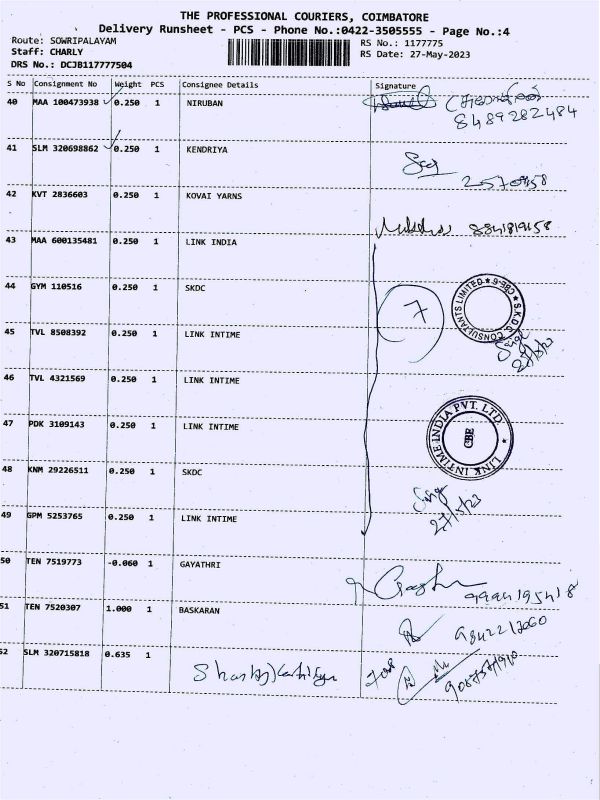 THE PROFESSIONAL COURIERS, COIMBATORE
Delivery Runsheet - PCS - Phone No.:0422-3505555 - Page No.:4
Route: SOWRIPALAYAM
Staff: CHARLY
DRS No.: DCJB117777504
RS No.: 1177775
RS Date: 27-May-2023
S No Consignment No Weight PCS Consignee Details Signature
40 MAA 100473938 0.250 1 NIRUBAN
8489282484
41 SLM 320698862 0.250 1 KENDRIYA
2570458
42 KVT 2836603 0.250 1 KOVAI YARNS
43 MAA 600135481 0.250 1 LINK INDIA
44 GYM 110516 0.250 1 SKDC
7
S.K.D.C CONSULTANTS LIMITED * CBE-6 *
45 TVL 8508392 0.250 1 LINK INTIME
27/5/23
46 TVL 4321569 0.250 1 LINK INTIME
47 PDK 3109143 0.250 1 LINK INTIME
LINK INTIME INDIA PVT. LTD. * CBE
48 KNM 29226511 0.250 1 SKDC
27/5/23
49 GPM 5253765 0.250 1 LINK INTIME
50 TEN 7519773 -0.060 1 GAYATHRI
9994195418
51 TEN 7520307 1.000 1 BASKARAN
52 SLM 320715818 0.635 1